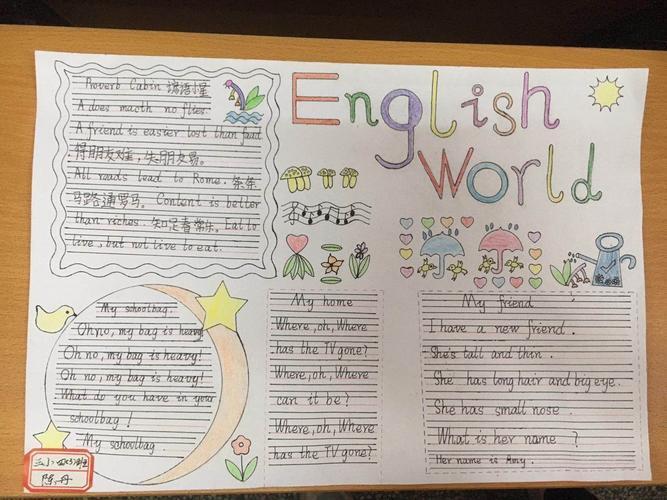 English
World
Proverb Cabin 谚语小屋
A does macth no flies.
A friend is easier lost than foud
得朋友难,失朋友易。
All roads lead to Rome. 条条
马路通罗马。 Content is better
than riches. 知足者常乐. Eat to
live, but not live to eat.
My schoolbag.
Oh no, my bag is heavy!
Oh no, my bag is heavy!
Oh no, my bag is heavy!
What do you have in your
schoolbag!
My schoolbag.
My home
Where, oh, Where
has the TV gone?
Where, oh, Where
can it be?
Where, oh, Where
has the TV gone?
My friend
I have a new friend.
She's tall and thin.
She has long hair and big eye.
She has small nose.
What is her name ?
Her name is Amy.